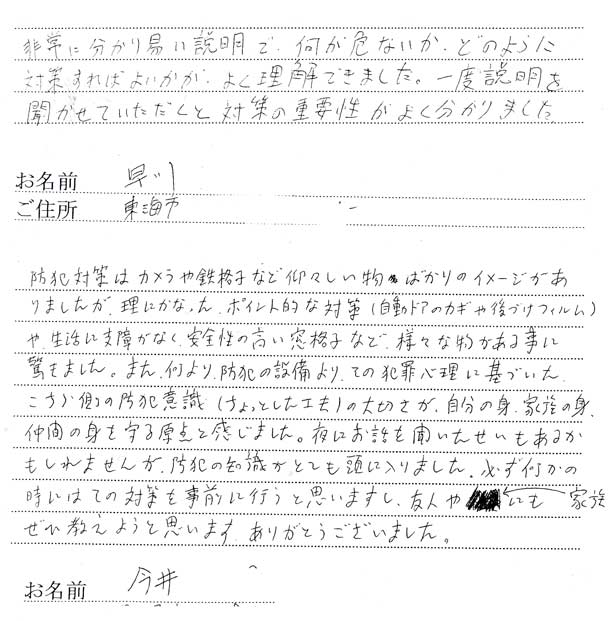 非常に分かり易い説明で、何が危ないか、どのように
対策すればよいかが、よく理解できました。一度説明を
聞かせていただくと対策の重要性がよく分かりました
お名前 早川
ご住所 東海市
防犯対策はカメラや鉄格子など仰々しい物ばかりのイメージがあ
りましたが、理にかなった、ポイント的な対策(自動ドアのカギや後づけフィルム)
や、生活に支障がなく、安全性の高い窓格子など、様々な物がある事に
驚きました。また、何より、防犯の設備より、その犯罪心理に基づいた、
こちら側の防犯意識(ちょっとした工夫)の大切さが、自分の身、家族の身、
仲間の身を守る原点と感じました。夜にお話を聞いたせいもあるか
もしれませんが、防犯の知識がとても頭に入りました。必ず何かの
時にはその対策を事前に行うと思いますし、友人や にも 家族
ぜひ教えようと思います。ありがとうございました。
お名前 今井